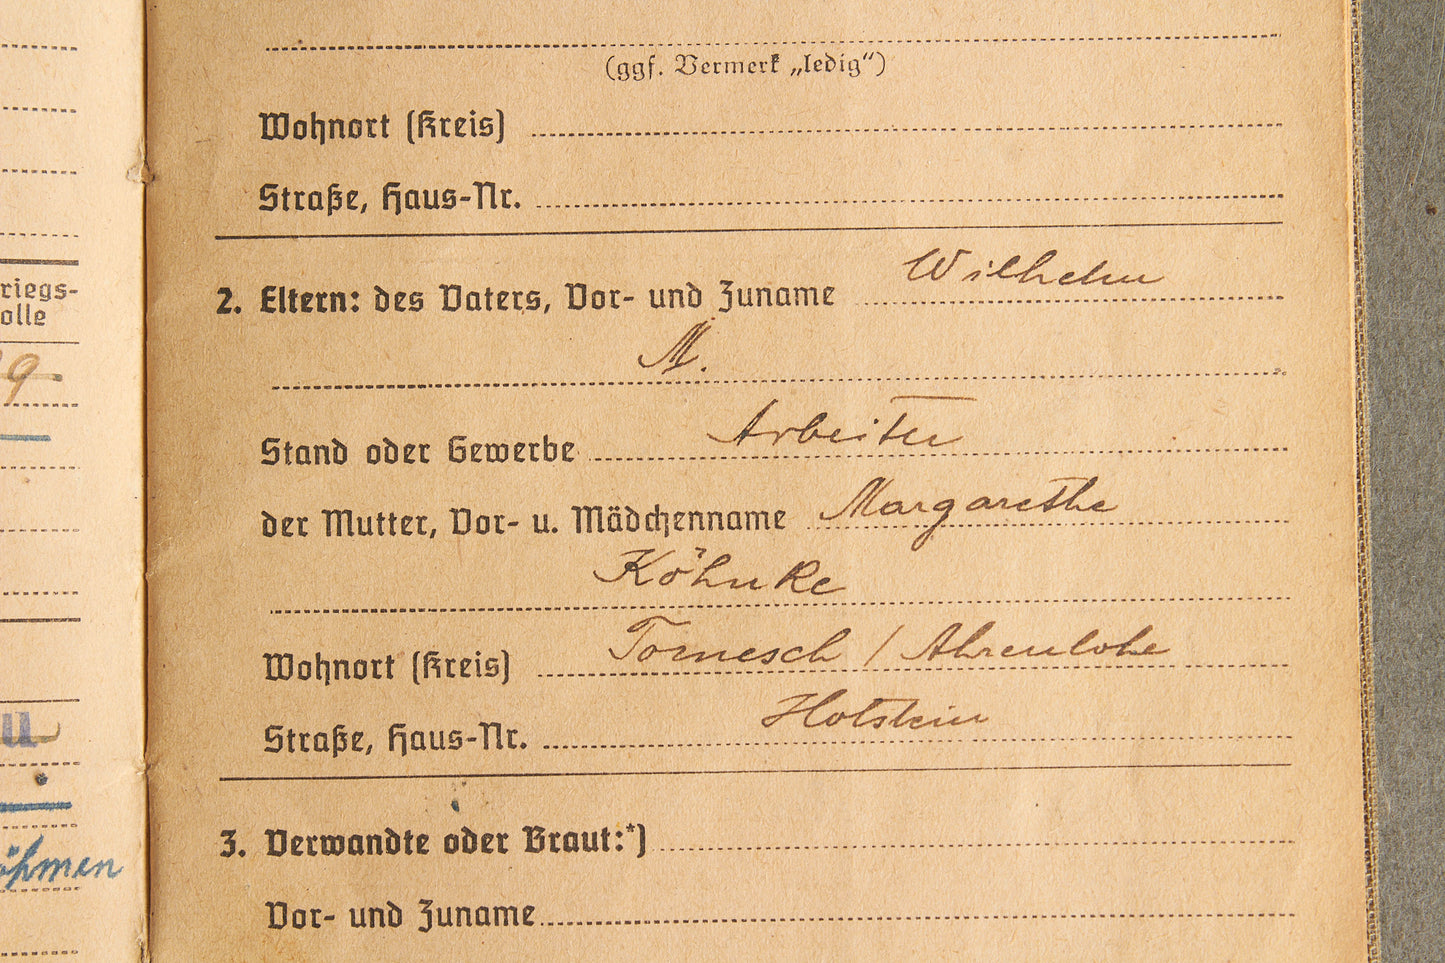 (ggf. Vermerk „ledig“)
Wohnort (Kreis)
Straße, Haus-Nr.
2. Eltern: des Vaters, Vor- und Zuname Wilhelm
M.
Stand oder Gewerbe Arbeiter
der Mutter, Vor- u. Mädchenname Margarethe
Köhnke
Wohnort (Kreis) Tornesch / Ahrenlohe
Straße, Haus-Nr. Holstein
3. Verwandte oder Braut:*)
Vor- und Zuname
riegs-
olle
9
u
öhmen